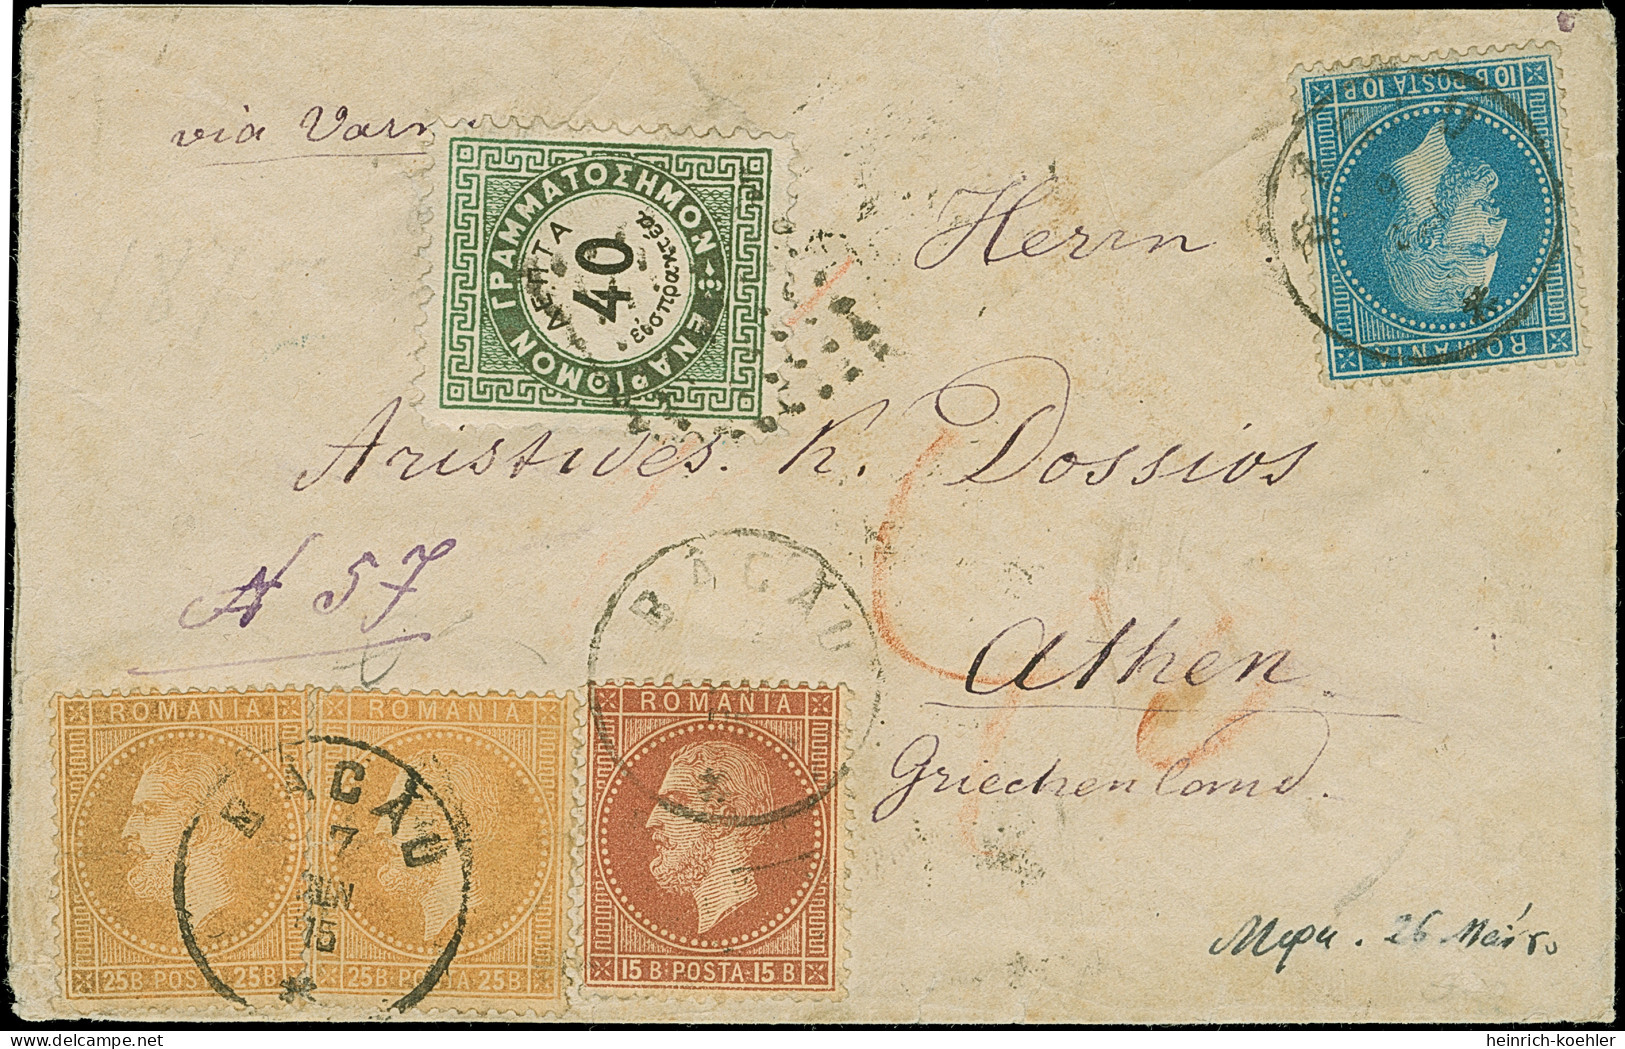 via Varn
ΕΝΑΡΙΘΜΟΝ ΓΡΑΜΜΑΤΟΣΗΜΟΝ
ΛΕΠΤΑ
40
εἰσπρακτέα
10 B POSTA 10 B
ROMANIA
Herrn
Aristides. K. Dossios
N 57
Athen
Griechenland.
BACĂU
ROMANIA
25B·POSTA·25B
ROMANIA
25B·POSTA·25B
BACĂU
7
IUN
75
ROMANIA
15 B·POSTA·15 B
26
heinrich-koehler